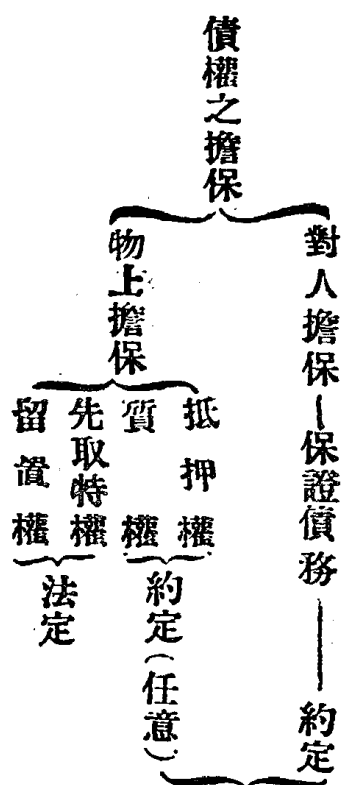 債權之擔保
對人擔保—保證債務——約定
物上擔保
抵押權
質權
約定(任意)
先取特權
留置權
法定